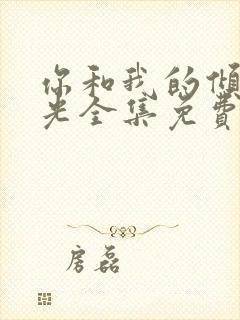 你和我的倾
光全集免费
房磊